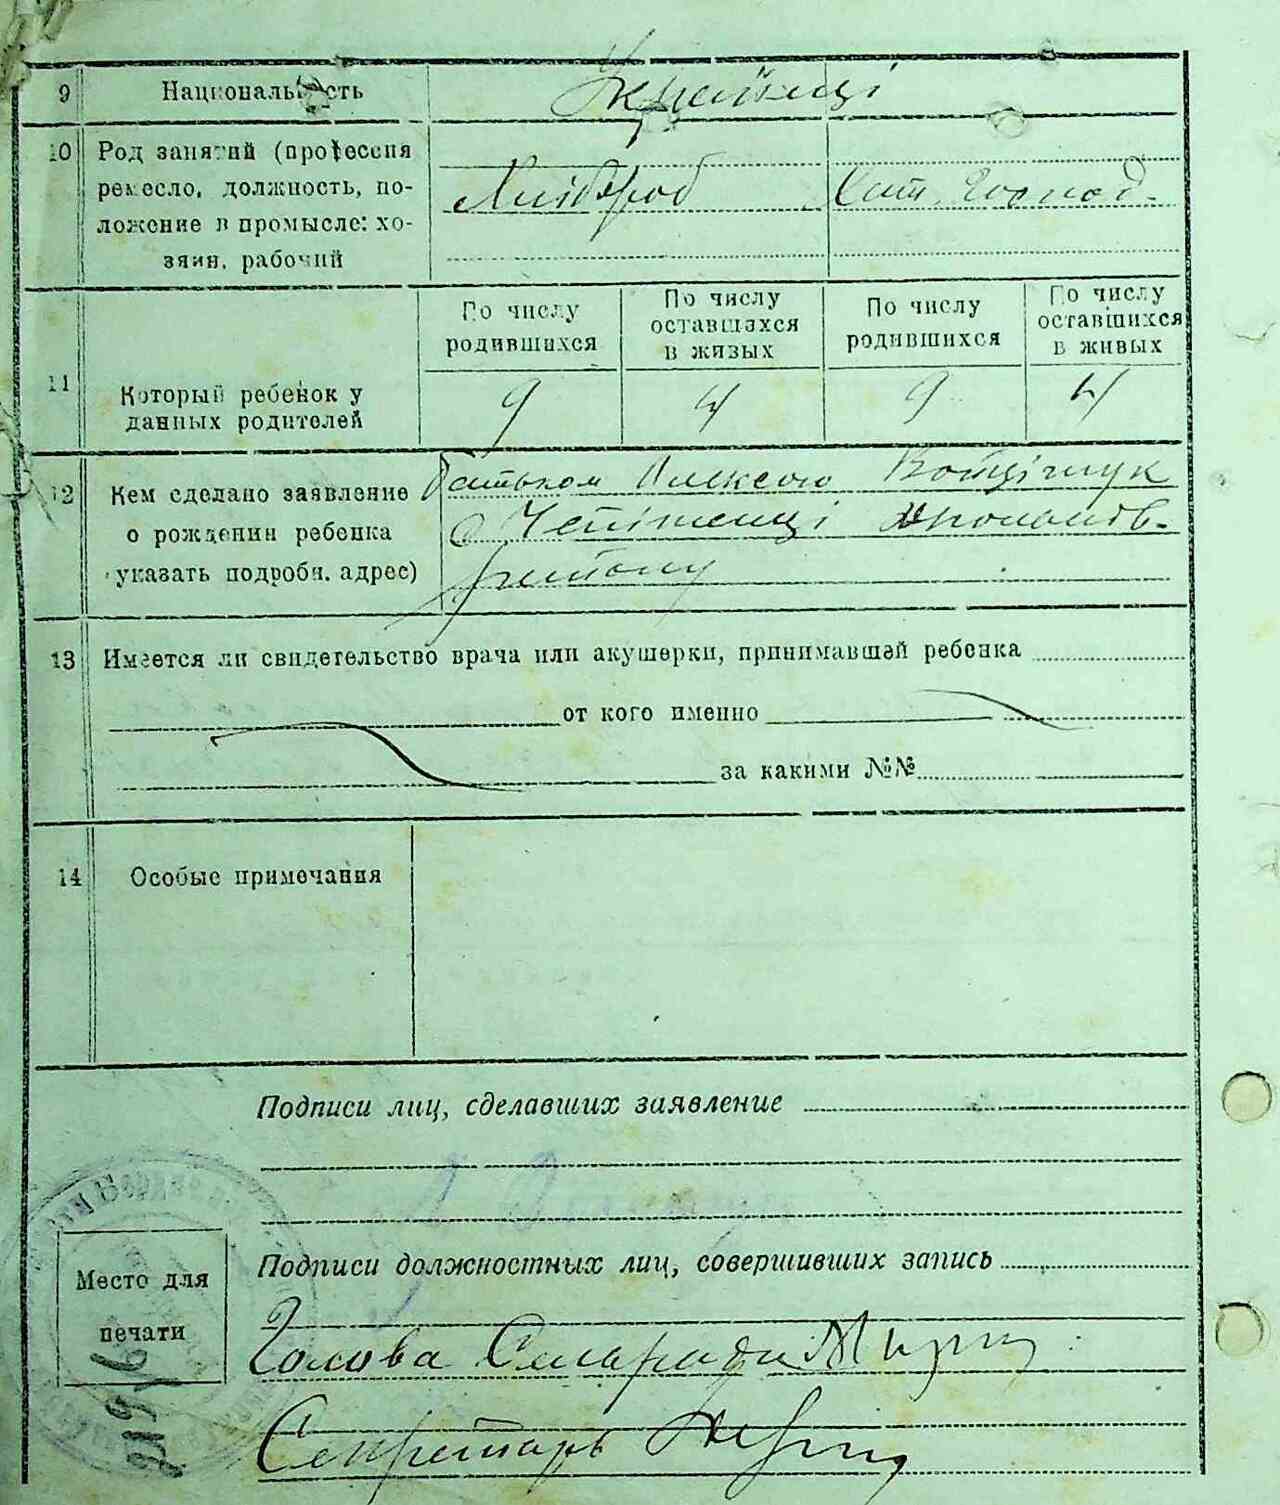 9 Национальность Українці
10 Род занятий (профессия
ремесло, должность, по-
ложение в промысле: хо-
зяин, рабочий
Хлібороб Хатн. господ.
11 Который ребенок у
данных родителей
По числу
родившихся
По числу
оставшихся
в живых
По числу
родившихся
По числу
оставшихся
в живых
9 4 9 4
12 Кем сделано заявление
о рождении ребенка
указать подробн. адрес)
Батьком Олексою
с
району
13 Имеется ли свидетельство врача или акушерки, принимавшей ребенка
от кого именно
за какими №№
14 Особые примечания
Подписи лиц, сделавших заявление
Подписи должностных лиц, совершивших запись
Место для
печати
Голова Сільради
Секретарь